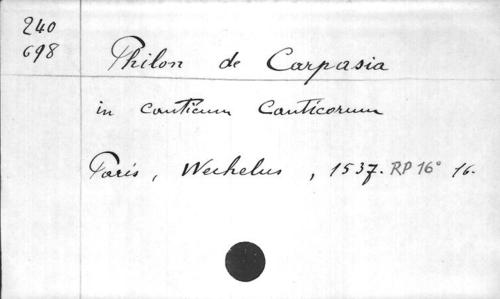 240
698
Philon de Carpasia
in canticum Canticorum
Paris, Wechelus, 1537. RP 16° 16.